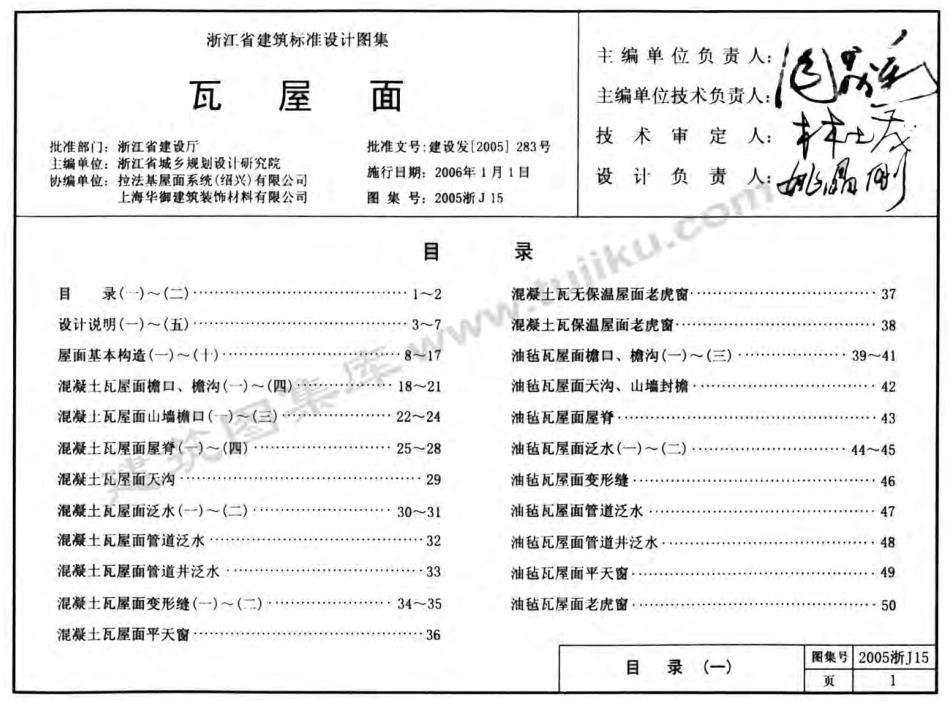 浙江省建筑标准设计图集
瓦 屋 面
批准部门：浙江省建设厅
主编单位：浙江省城乡规划设计研究院
协编单位：拉法基屋面系统(绍兴)有限公司
上海华御建筑装饰材料有限公司
批准文号：建设发[2005] 283号
施行日期：2006年1月1日
图 集 号：2005浙J 15
主 编 单 位 负 责 人：
主编单位技术负责人：
技 术 审 定 人：
设 计 负 责 人：
目 录
目 录(一)～(二)⋯⋯1～2
设计说明(一)～(五)⋯⋯3～7
屋面基本构造(一)～(十)⋯⋯8～17
混凝土瓦屋面檐口、檐沟(一)～(四)⋯⋯18～21
混凝土瓦屋面山墙檐口(一)～(三)⋯⋯22～24
混凝土瓦屋面屋脊(一)～(四)⋯⋯25～28
混凝土瓦屋面天沟⋯⋯29
混凝土瓦屋面泛水(一)～(二)⋯⋯30～31
混凝土瓦屋面管道泛水⋯⋯32
混凝土瓦屋面管道井泛水⋯⋯33
混凝土瓦屋面变形缝(一)～(二)⋯⋯34～35
混凝土瓦屋面平天窗⋯⋯36
混凝土瓦无保温屋面老虎窗⋯⋯37
混凝土瓦保温屋面老虎窗⋯⋯38
油毡瓦屋面檐口、檐沟(一)～(三)⋯⋯39～41
油毡瓦屋面天沟、山墙封檐⋯⋯42
油毡瓦屋面屋脊⋯⋯43
油毡瓦屋面泛水(一)～(二)⋯⋯44～45
油毡瓦屋面变形缝⋯⋯46
油毡瓦屋面管道泛水⋯⋯47
油毡瓦屋面管道井泛水⋯⋯48
油毡瓦屋面平天窗⋯⋯49
油毡瓦屋面老虎窗⋯⋯50
建筑图集库 www.tujiku.com
目 录 (一)
图集号 2005浙J15
页 1